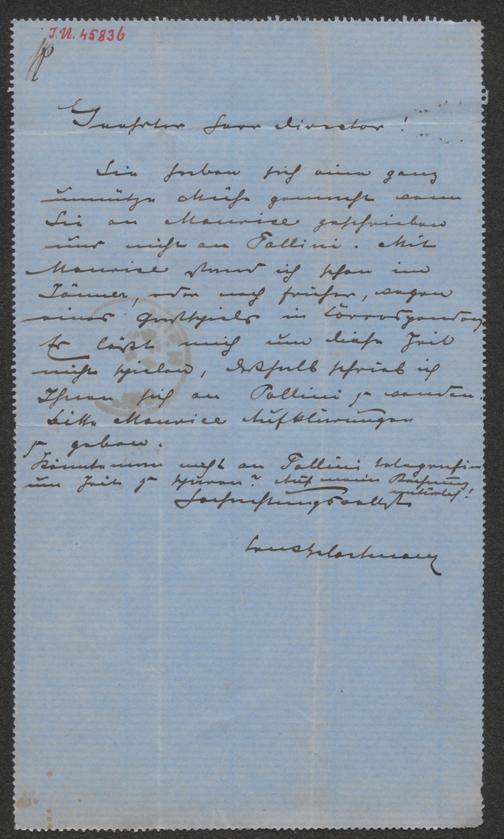 J.N. 45836
Geehrter Herr Director!
Sie haben sich eine ganz
unnütze Mühe gemacht wenn
Sie an Maurice geschrieben
und nicht an Pollini. Mit
Maurice stand ich schon im
Jänner, oder noch früher, wegen
eines Gastspiels in Correspondenz
Er läßt mich um diese Zeit
nicht spielen, deßhalb schrieb ich
Ihnen sich an Pollini zu wenden.
Bitte Maurice Aufklärungen
zu geben.
Könnte man nicht an Pollini telegrafiren
um Zeit zu sparen? Auf meine Rechnung
natürlich!
Hochachtungsvollst